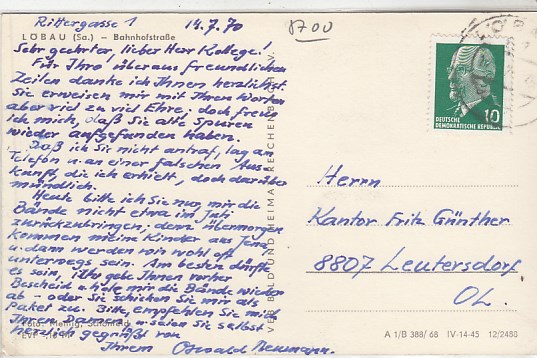 Rittergasse 1 14.7.70
LÖBAU (Sa.) – Bahnhofstraße
Sehr geehrter, lieber Herr Kollege!
Für Ihre überaus freundlichen
Zeilen danke ich Ihnen herzlichst.
Sie erweisen mir mit Ihren Worten
aber viel zu viel Ehre; doch freue
ich mich, daß Sie alte Spuren
wieder aufgefunden haben.
Daß ich Sie nicht antraf, lag am
Telefon u. an einer falschen Aus-
kunft, die ich erhielt, doch darüber
mündlich.
Heute bitte ich Sie nur, mir die
Bände nicht etwa im Juli
zurückzubringen; denn übermorgen
kommen meine Kinder aus Jena,
u. dann werden wir wohl oft
unterwegs sein. Am besten dürfte
es sein, ich gebe Ihnen vorher
Bescheid u. hole mir die Bände wieder
ab – oder Sie schicken Sie mir als
Paket zu. Bitte, empfehlen Sie mich
Ihren Damen u. seien Sie selbst
herzlich gegrüßt von
Ihrem Oswald Neumann.
8700
DEUTSCHE
DEMOKRATISCHE REPUBLIK
10
Herrn
Kantor Fritz Günther
8807 Leutersdorf
OL.
VERLAG BILD UND HEIMAT REICHENBACH
A 1/B 388/68 IV-14-45 12/2488